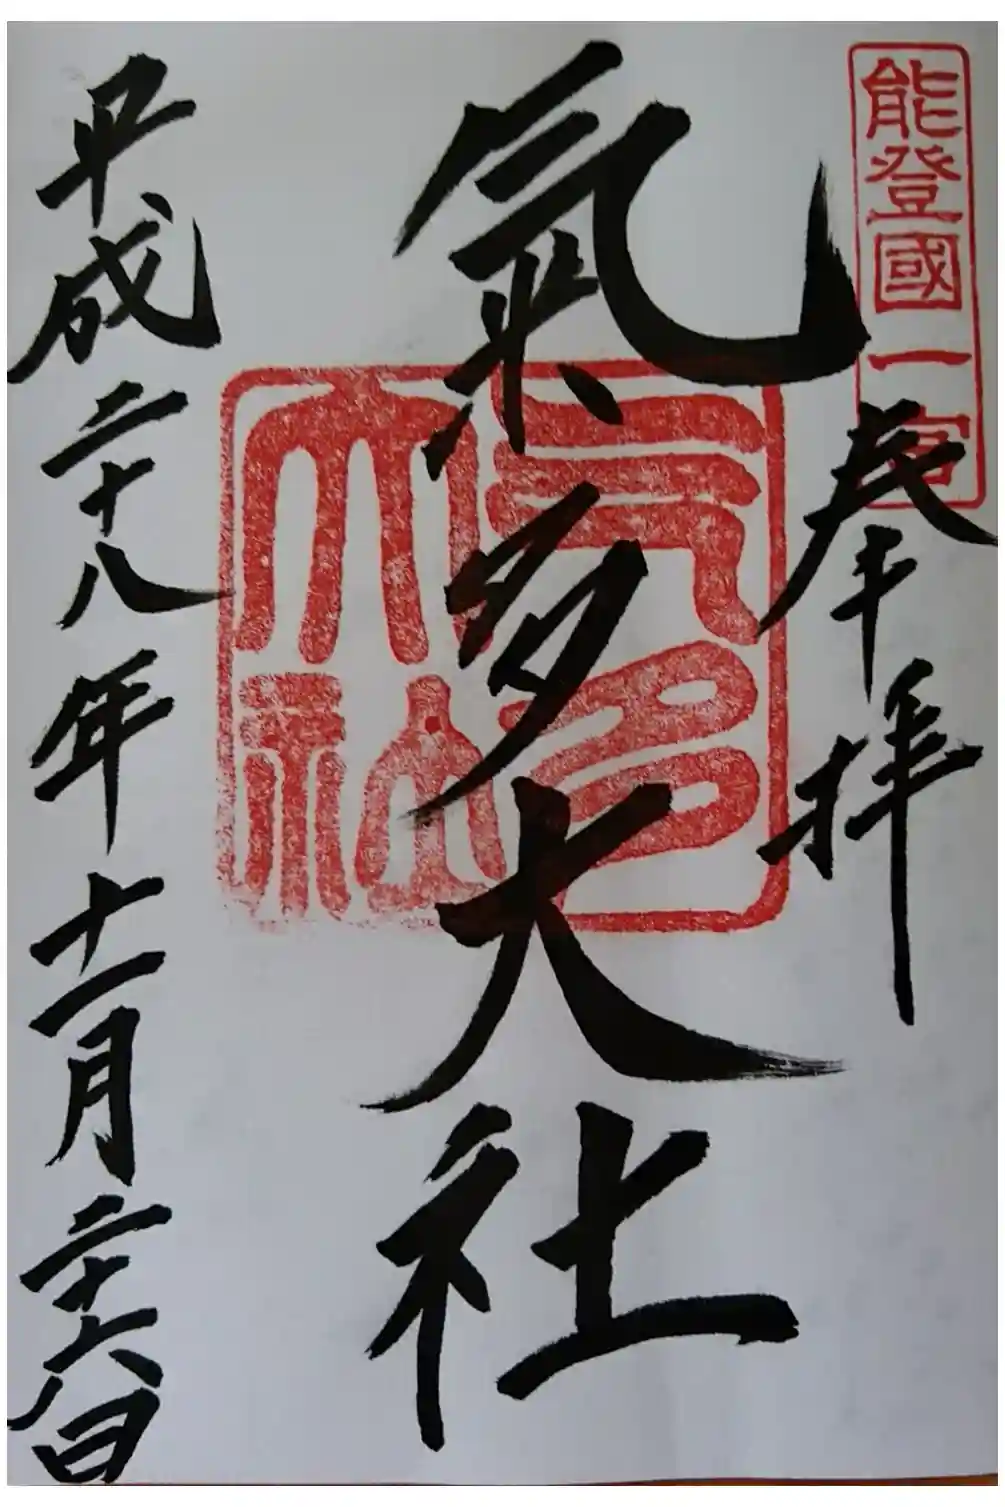 能登國一宮
奉拝
氣多大社
氣多大社
平成二十八年十一月二十六日